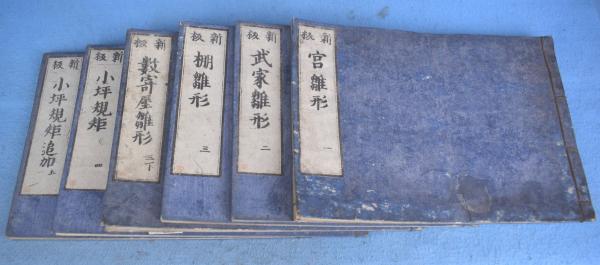 新板
宮雛形
一
新板
武家雛形
二
新板
棚雛形
三
新板
數寄屋雛形
三下
新板
小坪規矩
四
新板
小坪規矩追加